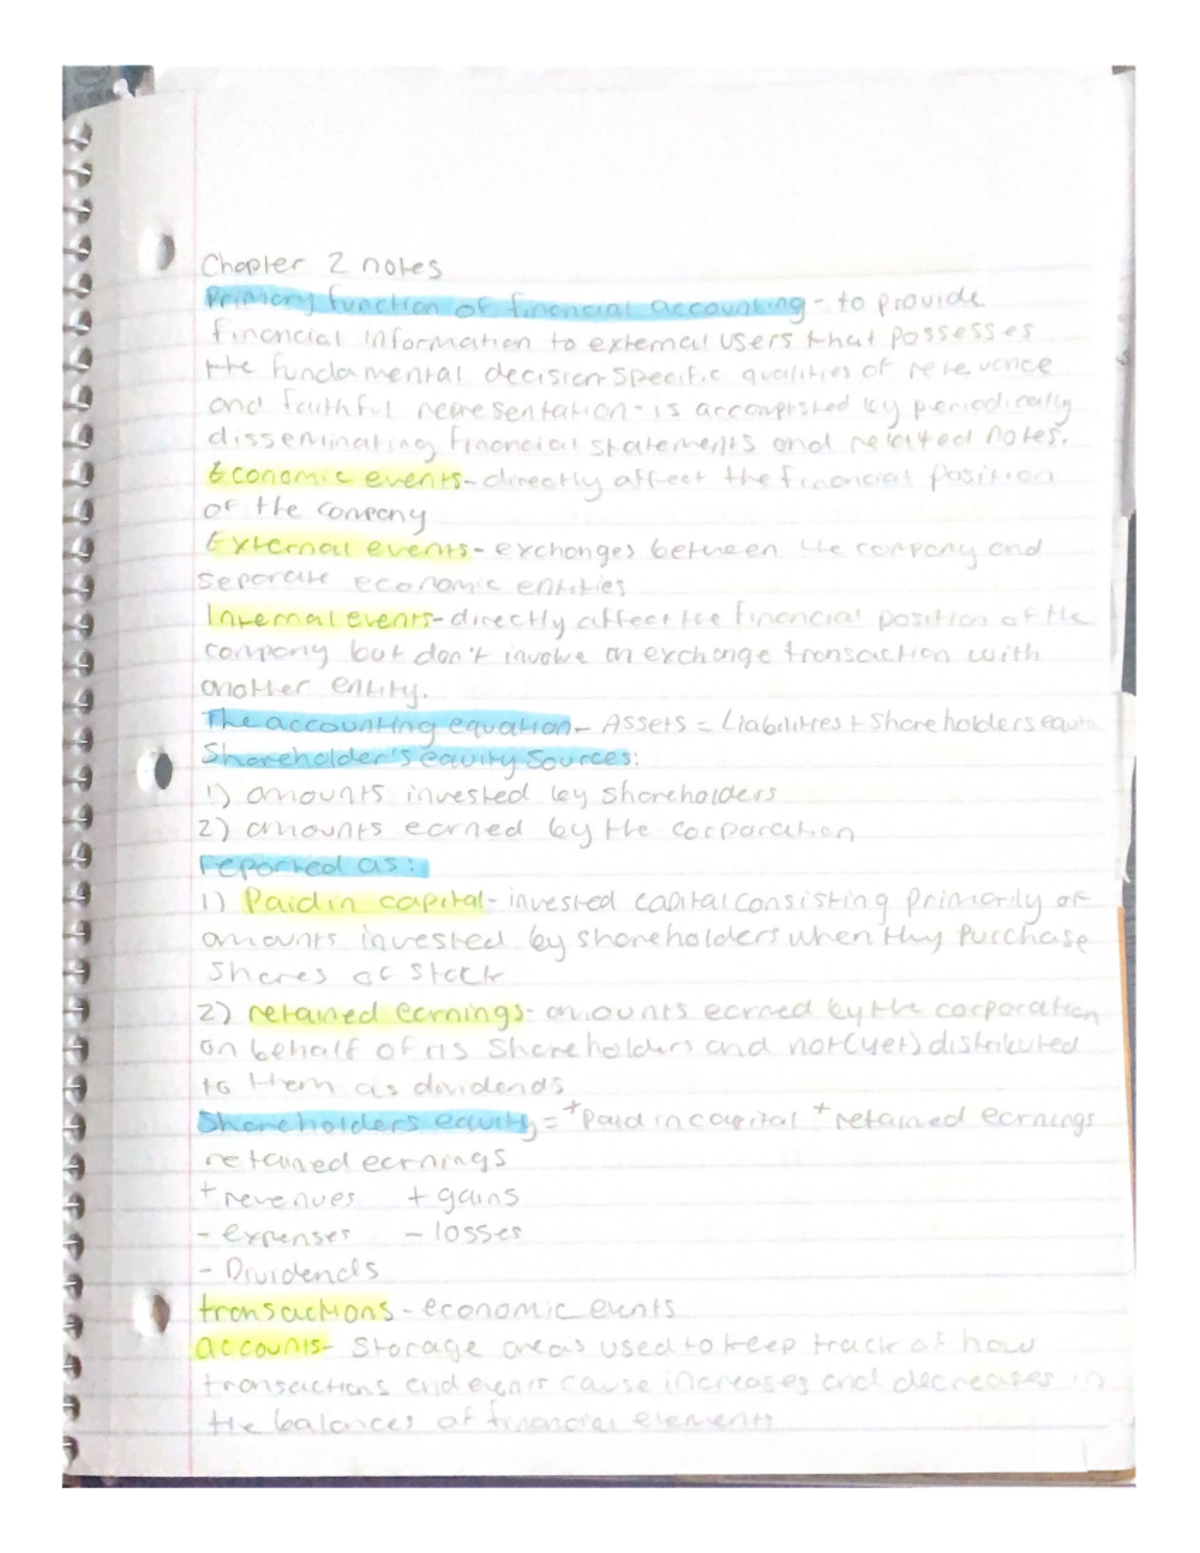 Chapter 2 notes
Primary function of financial accounting - to provide
financial information to external users that possesses
the fundamental decision-specific qualities of relevance
and faithful representation - is accomplished by periodically
disseminating financial statements and related notes.
Economic events - directly affect the financial position
of the company
External events - exchanges between the company and
separate economic entities
Internal events - directly affect the financial position of the
company but don't involve an exchange transaction with
another entity.
The accounting equation - Assets = Liabilities + Shareholders equity
Shareholder's equity Sources:
1) amounts invested by shareholders
2) amounts earned by the corporation
reported as:
1) Paid in capital - invested capital consisting primarily of
amounts invested by shareholders when they purchase
shares of stock
2) retained earnings - amounts earned by the corporation
on behalf of its shareholders and not (yet) distributed
to them as dividends
Shareholders equity = + Paid in capital + retained earnings
retained earnings
+ revenues + gains
- expenses - losses
- Dividends
transactions - economic events
accounts - Storage areas used to keep track of how
transactions and events cause increases and decreases in
the balances of financial elements